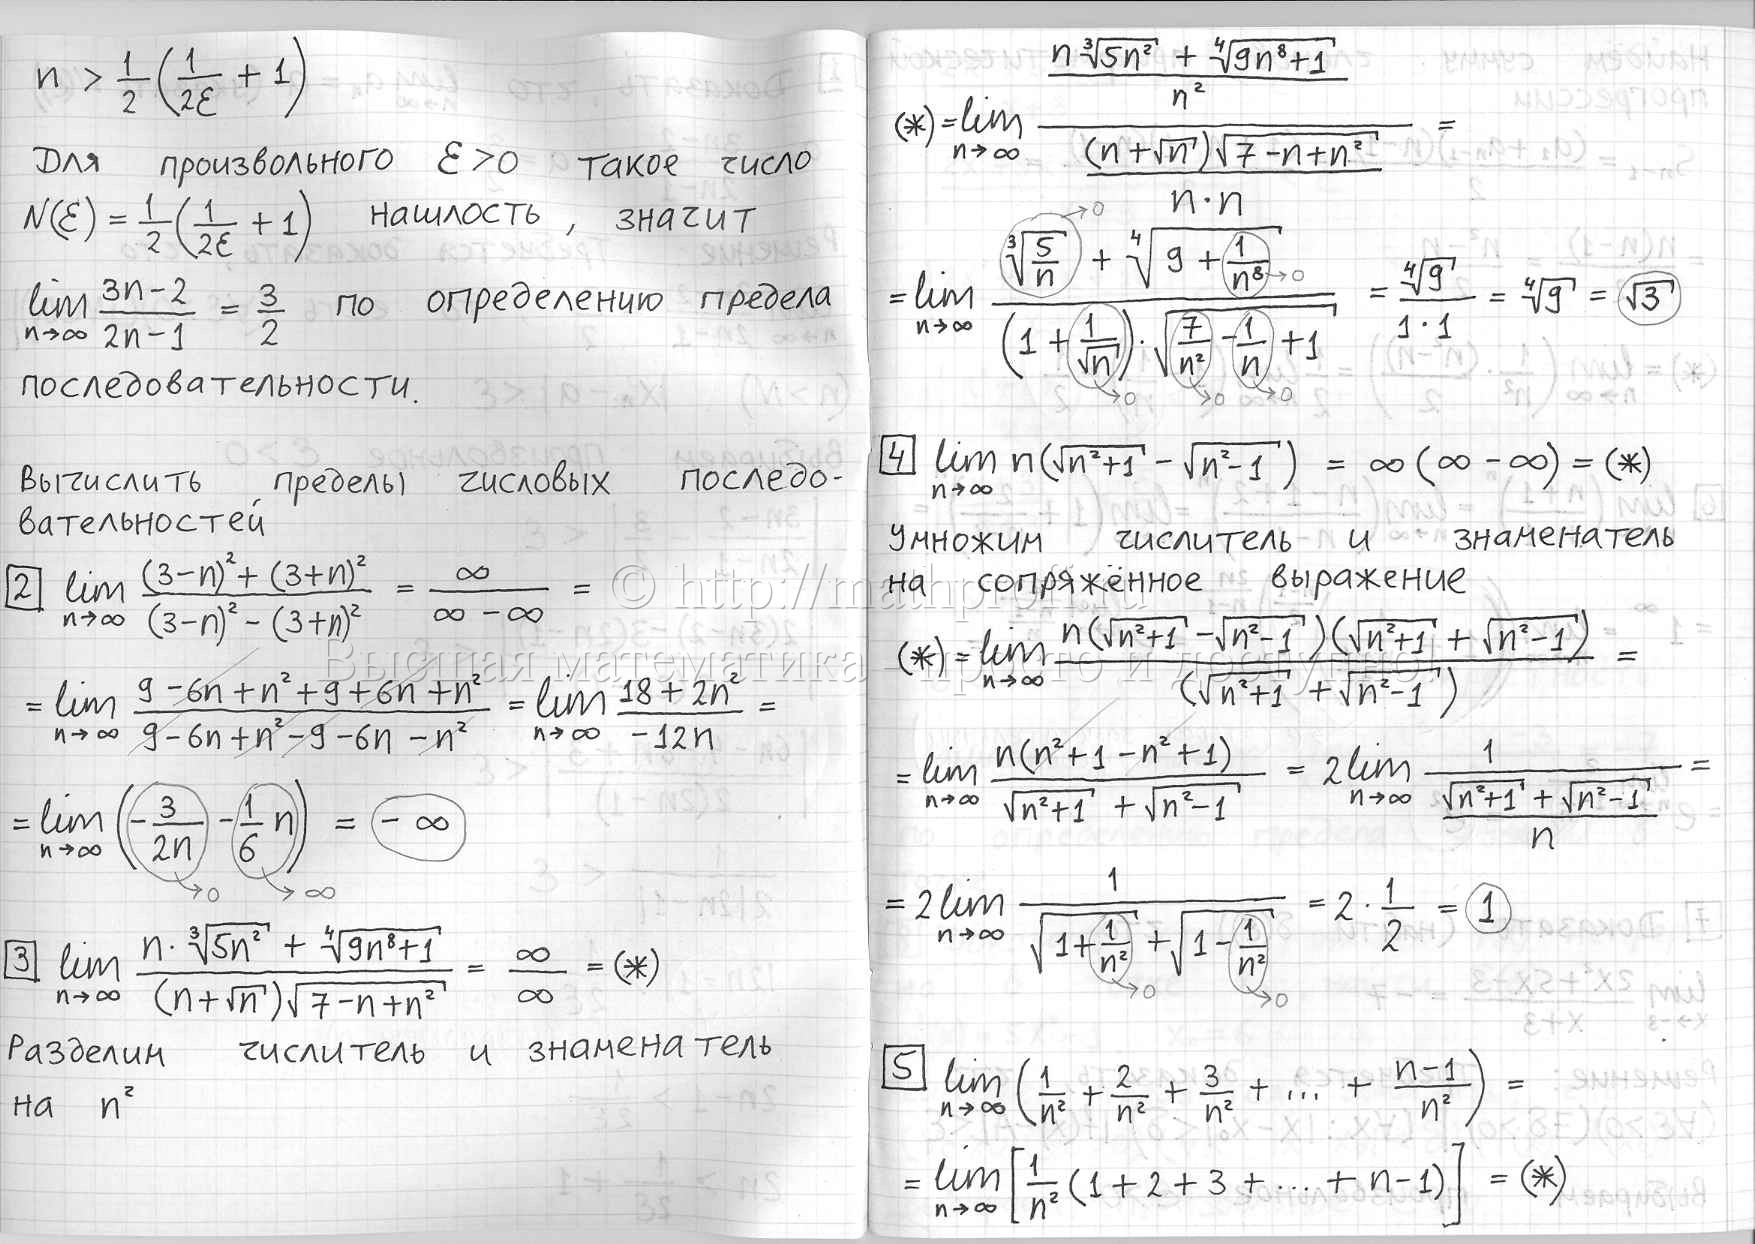 n > 1/2 (1/(2ε) + 1)
Для произвольного ε>0 такое число
N(ε) = 1/2 (1/(2ε) + 1) нашлость, значит
lim n→∞ (3n-2)/(2n-1) = 3/2 по определению предела
последовательности.
Вычислить пределы числовых последо-
вательностей
2 lim n→∞ ((3-n)² + (3+n)²)/((3-n)² - (3+n)²) = ∞/(∞-∞) =
= lim n→∞ (9-6n+n²+9+6n+n²)/(9-6n+n²-9-6n-n²) = lim n→∞ (18+2n²)/(-12n) =
= lim n→∞ (-3/(2n) - 1/6 n) = -∞
→0 →∞
3 lim n→∞ (n·∛(5n²) + ∜(9n⁸+1))/((n+√n)√(7-n+n²)) = ∞/∞ = (*)
Разделим числитель и знаменатель
на n²
(*) = lim n→∞ ((n∛(5n²) + ∜(9n⁸+1))/n²)/(((n+√n)√(7-n+n²))/(n·n)) =
= lim n→∞ (∛(5/n) + ∜(9 + 1/n⁸))/((1 + 1/√n)·√(7/n² - 1/n + 1)) = ∜9/(1·1) = ∜9 = √3
→0 →0 →0 →0 →0
4 lim n→∞ n(√(n²+1) - √(n²-1)) = ∞(∞-∞) = (*)
Умножим числитель и знаменатель
на сопряжённое выражение
(*) = lim n→∞ (n(√(n²+1) - √(n²-1))(√(n²+1) + √(n²-1)))/(√(n²+1) + √(n²-1)) =
= lim n→∞ (n(n²+1-n²+1))/(√(n²+1) + √(n²-1)) = 2 lim n→∞ 1/((√(n²+1) + √(n²-1))/n) =
= 2 lim n→∞ 1/(√(1+1/n²) + √(1-1/n²)) = 2·1/2 = 1
→0 →0
5 lim n→∞ (1/n² + 2/n² + 3/n² + ... + (n-1)/n²) =
= lim n→∞ [1/n² (1+2+3+...+n-1)] = (*)
© http://mathprofi.ru
Высшая математика – просто и доступно!